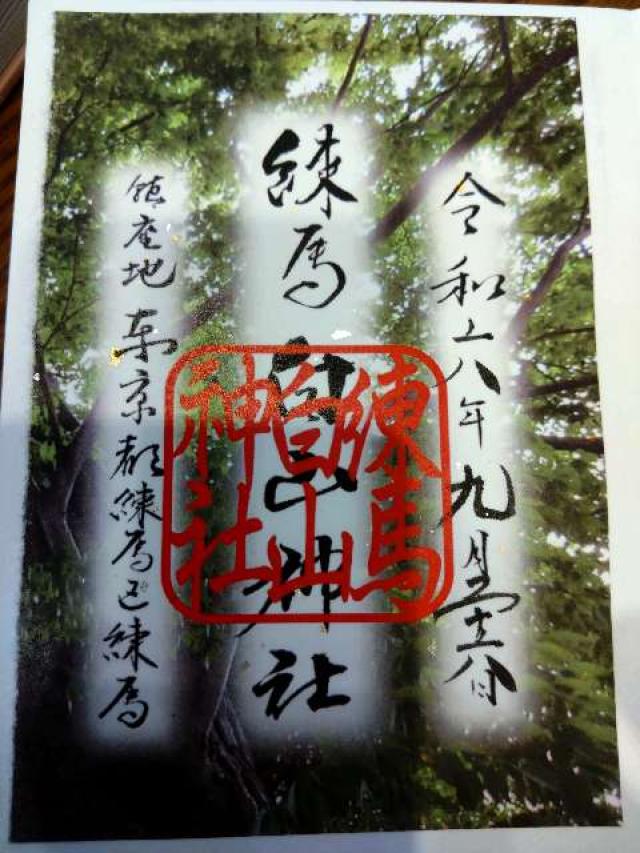 令和六年九月十六日
練馬白山神社
鎮座地 東京都練馬区練馬
練馬
白山
神社